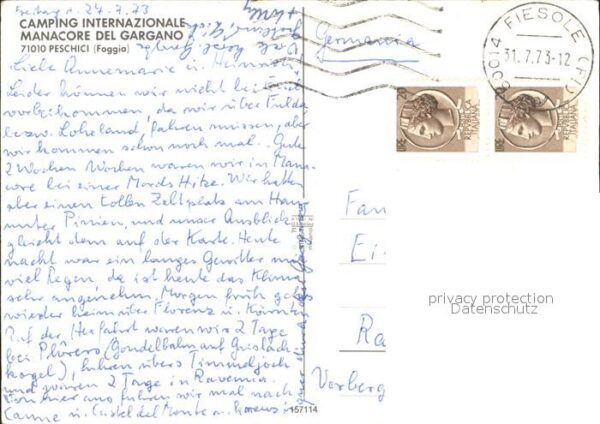 Freitag d. 24.7.73
CAMPING INTERNAZIONALE
MANACORE DEL GARGANO
71010 PESCHICI (Foggia)
Liebe Annemarie u. Heinrich
Leider können wir nicht bei Euch
vorbeikommen, da wir über Fulda
bezw. Loheland, fahren müssen, aber
wir kommen schon noch mal. Gute
2 Wochen Wochen waren wir in Mana-
core bei einer Mords Hitze. Wir hatten
aber einen tollen Zeltplatz am Hang
unter Pinien, und unser Ausblick
gleicht dem auf der Karte. Heute
nacht war ein langes Gewitter mit
viel Regen, da ist heute das Klima
sehr angenehm. Morgen früh gehts
wieder heim über Florenz u. Kärnten
Auf der Herfahrt waren wir 2 Tage
bei (Gondelbahn auf
kogel), fuhren übers Timmelsjoch
und waren 2 Tage in Ravenna.
Von hier aus fuhren wir mal nach
Canne u. Castel del Monte u.
quer durch Gargano
Germania
FIESOLE (FI)
31.7.73-12
50014
Fam
Ei
Ra
Vorberg
privacy protection
Datenschutz
157114